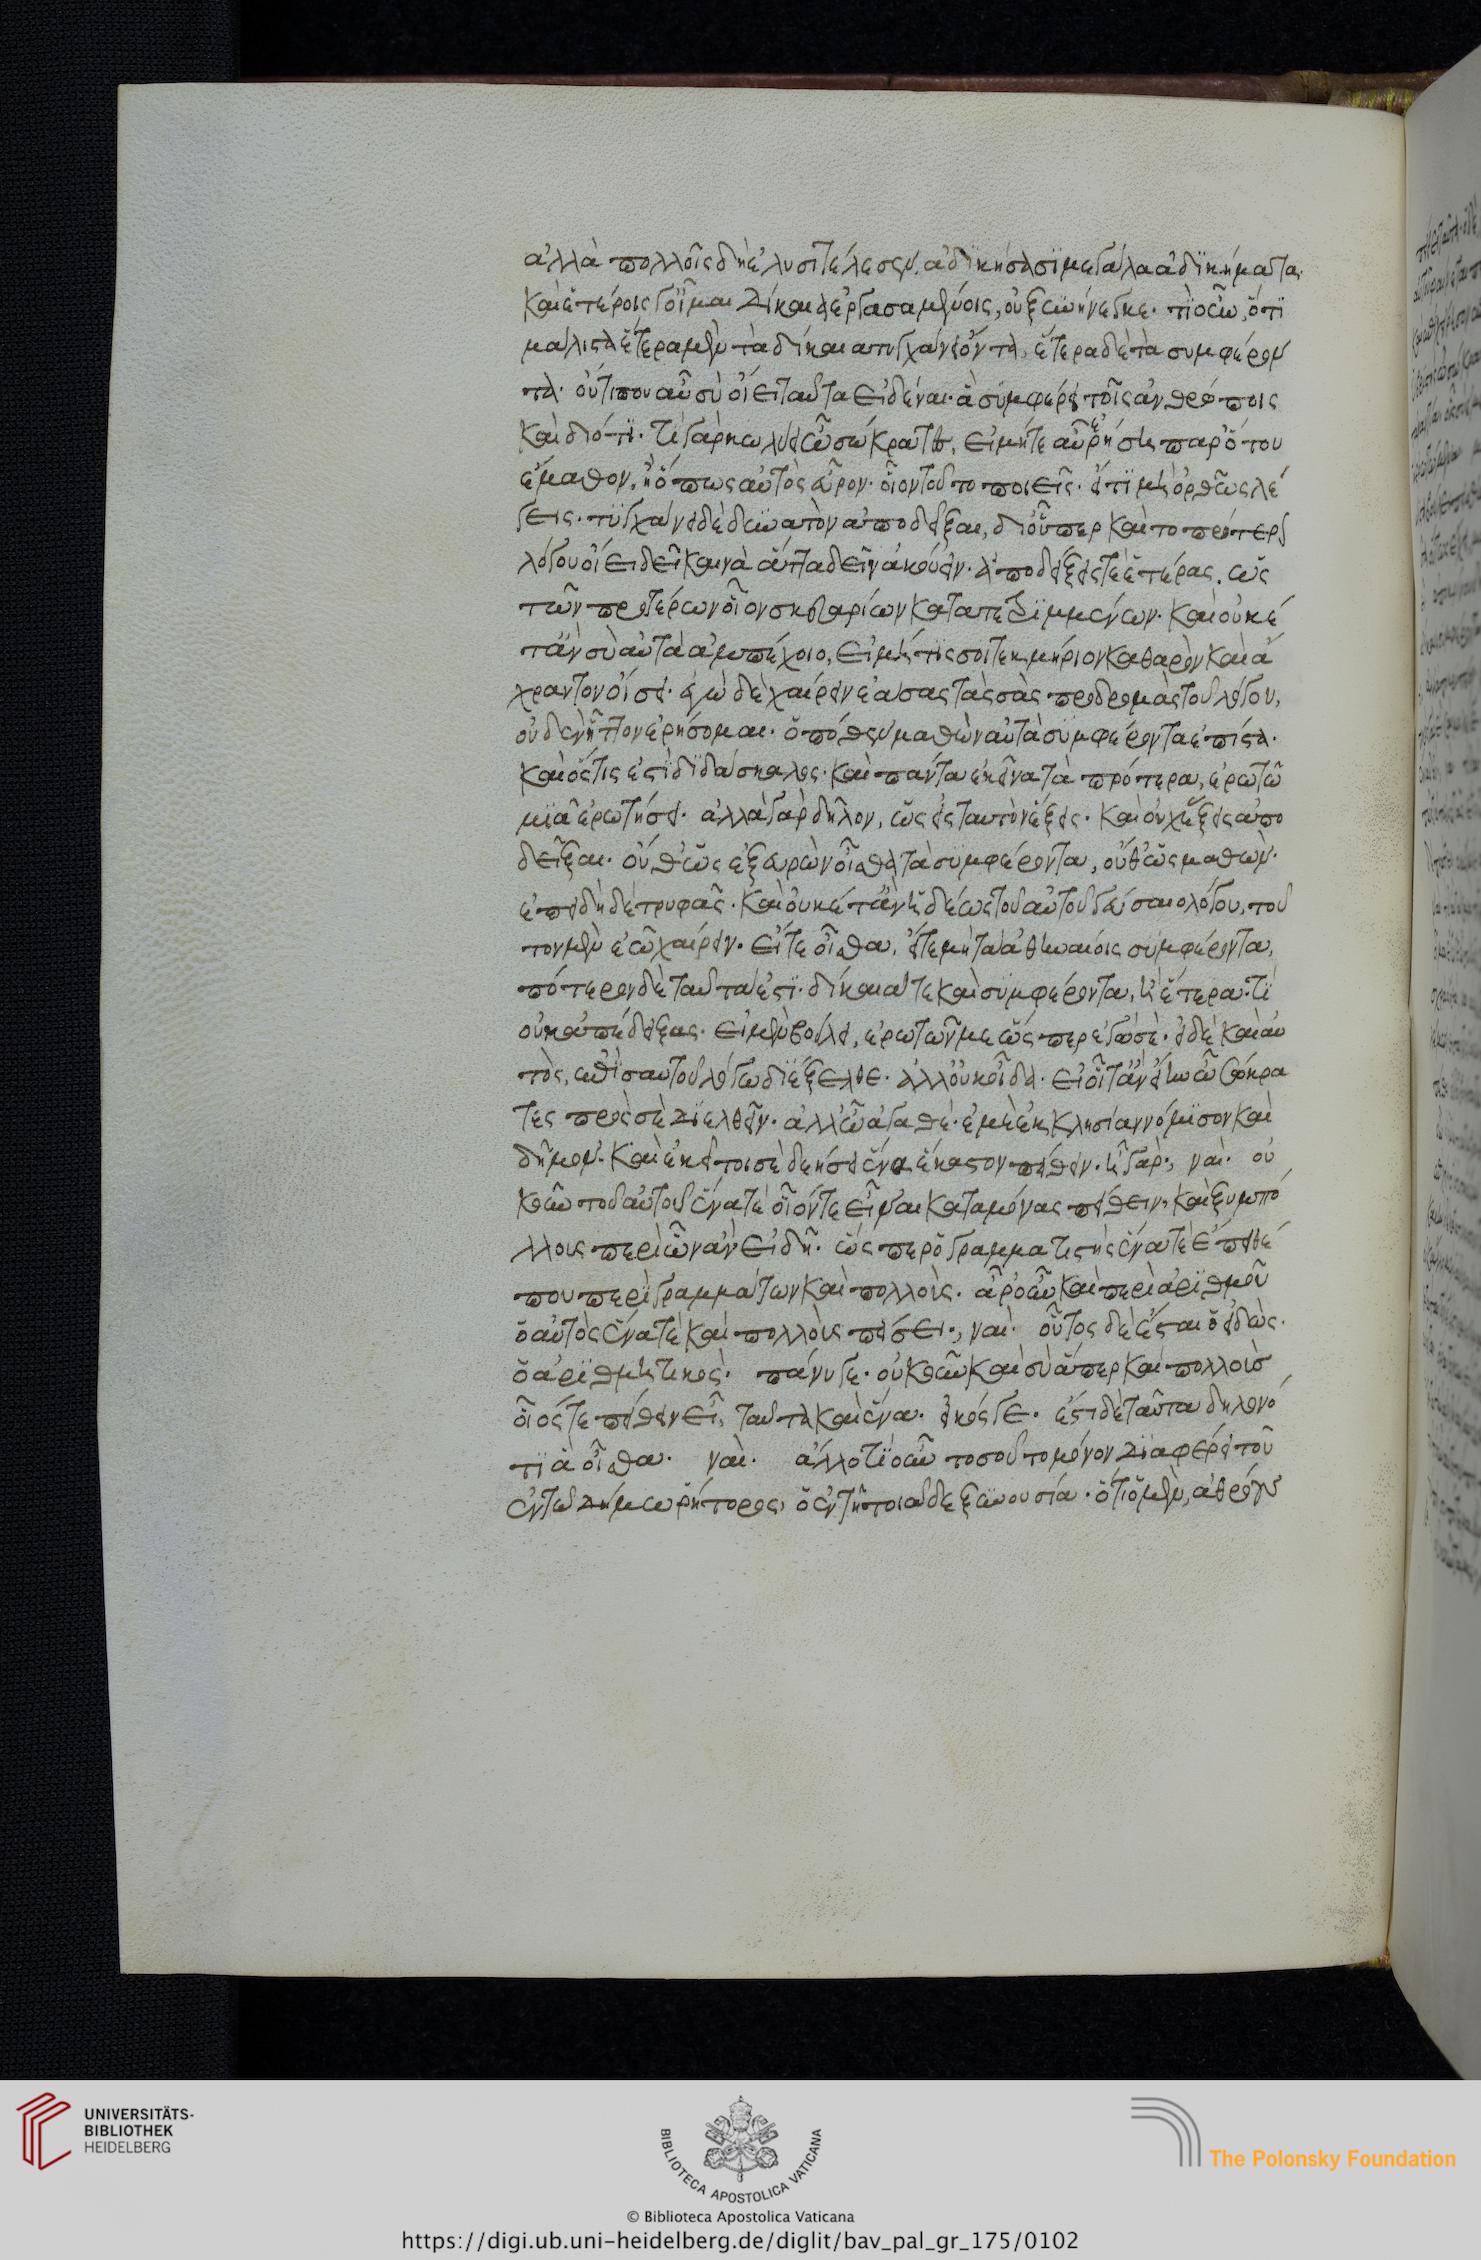 ἀλλὰ πολλοῖς δὴ ἐλυσιτέλεσεν ἀδικήσασι μεγάλα ἀδικήματα.
καὶ ἑτέροις γ' οἶμαι δίκαια ἐργασαμένοις, οὐ ξυνήνεγκε. τί οὖν, ὅτι
μάλιστα ἕτερα μὲν τὰ δίκαια τυγχάνει ὄντα, ἕτερα δὲ τὰ συμφέρον
τα. οὔτι που αὖ σὺ οἴει ταῦτα εἰδέναι. ἃ συμφέρει τοῖς ἀνθρώποις
καὶ διότι. τί γὰρ κωλύει ὦ σώκρατες, εἰ μή γε αὖ ἐρήσει παρ' ὅτου
ἔμαθον, ἢ ὅπως αὐτὸς εὗρον. οἷον τοῦτο ποιεῖς. εἴ τι μὴ ὀρθῶς λέ
γεις. τυγχάνει δὲ δυνατὸν ἀποδεῖξαι, δι' οὗπερ καὶ τὸ πρότερον
λόγου οἴει δεῖ καινὰ ἄττα δεῖν ἀκούειν. ἀποδείξεις τε ἑτέρας. ὡς
τῶν προτέρων οἷον σκευαρίων κατατετριμμένων. καὶ οὐκέ
τ' ἂν σὺ αὐτὰ ἀμπέχοιο, εἰ μή τις σοι τεκμήριον καθαρὸν καὶ ἄ
χραντον οἴσει. ἐγὼ δὲ χαίρειν ἐάσας τὰς σὰς προδρομὰς τοῦ λόγου,
οὐδὲν ἧττον ἐρήσομαι. ὁπόθεν μαθὼν αὐτὰ συμφέροντα ἐπίστα.
καὶ ὅστις ἐστὶ διδάσκαλος. καὶ πάντα ἐκεῖνα τὰ πρότερα, ἐρωτῶ
μιᾷ ἐρωτήσει. ἀλλὰ γὰρ δῆλον, ὡς εἰς ταυτὸν ἥξεις. καὶ οὐχ ἕξεις ἀπο
δεῖξαι. οὔθ' ὡς ἐξευρὼν οἶσθα τὰ συμφέροντα, οὔθ' ὡς μαθών.
ἐπειδὴ δὲ τρυφᾷς. καὶ οὐκέτ' ἂν ἡδέως τοῦ αὐτοῦ γεύσαιο λόγου, τοῦ
τον μὲν ἐῶ χαίρειν. εἴτε οἶσθα, εἴτε μὴ τὰ ἀθηναίοις συμφέροντα,
πότερον δὲ ταῦτά ἐστι. δίκαιά τε καὶ συμφέροντα, ἢ ἕτερα. τί
οὐκ ἀπέδειξας. εἰ μὲν βούλει, ἐρωτῶν με ὥσπερ ἐγὼ σὲ. εἰ δὲ καὶ αὐ
τὸς, ἐπὶ σαυτοῦ λόγω διέξελθε. ἀλλ' οὐκ οἶδα. εἰ οἷός τ' ἂν εἴην ὦ σώκρα
τες πρὸς σὲ διελθεῖν. ἀλλ' ὦ ἀγαθὲ. ἐμὲ ἐκκλησίαν νόμισον καὶ
δῆμον. καὶ ἐκεῖ τοι σὲ δεήσει ἕνα ἕκαστον πείθειν. ἦ γὰρ., ναὶ. οὐ
κοῦν τοῦ αὐτοῦ ἕνα τὲ οἷόν τε εἶναι καταμόνας πείθειν, καὶ ξυμπό
λλους περὶ ὧν ἂν εἰδῆ. ὥσπερ ὁ γραμματιστὴς ἕνα τὲ πείθει
που περὶ γραμμάτων καὶ πολλοὺς. ἆρ' οὖν καὶ περὶ ἀριθμοῦ
ὁ αὐτὸς ἕνα τὲ καὶ πολλοὺς πείσει., ναὶ. οὗτος δὲ ἔσται ὁ εἰδὼς.
ὁ ἀριθμητικὸς. πάνυ γε. οὐκοῦν καὶ σὺ ἅπερ καὶ πολλοὺς
οἷός τε πείθειν εἶ, ταῦτα καὶ ἕνα. εἰκός γε. ἔστι δὲ ταῦτα δηλονό
τι ἃ οἶσθα. ναὶ. ἄλλο τί οὖν τοσοῦτο μόνον διαφέρει τοῦ
ἐν τῶ δήμω ῥήτορος, ὁ ἐν τῆ τοιᾶδε ξυνουσία. ὅτι ὁ μὲν, ἀθρόους
UNIVERSITÄTS-
BIBLIOTHEK
HEIDELBERG
BIBLIOTECA APOSTOLICA VATICANA
The Polonsky Foundation
© Biblioteca Apostolica Vaticana
https://digi.ub.uni-heidelberg.de/diglit/bav_pal_gr_175/0102